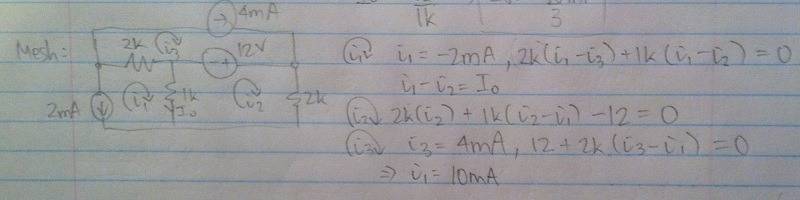 4mA
1k
3
Mesh:
2k
i₃
12V
i₁
1k
I₀
i₂
2k
2mA
i₁ i₁ = -2mA, 2k(i₁-i₃)+1k(i₁-i₂)=0
i₁-i₂=I₀
i₂ 2k(i₂)+1k(i₂-i₁)-12=0
i₃ i₃=4mA, 12+2k(i₃-i₁)=0
⇒ i₁=10mA